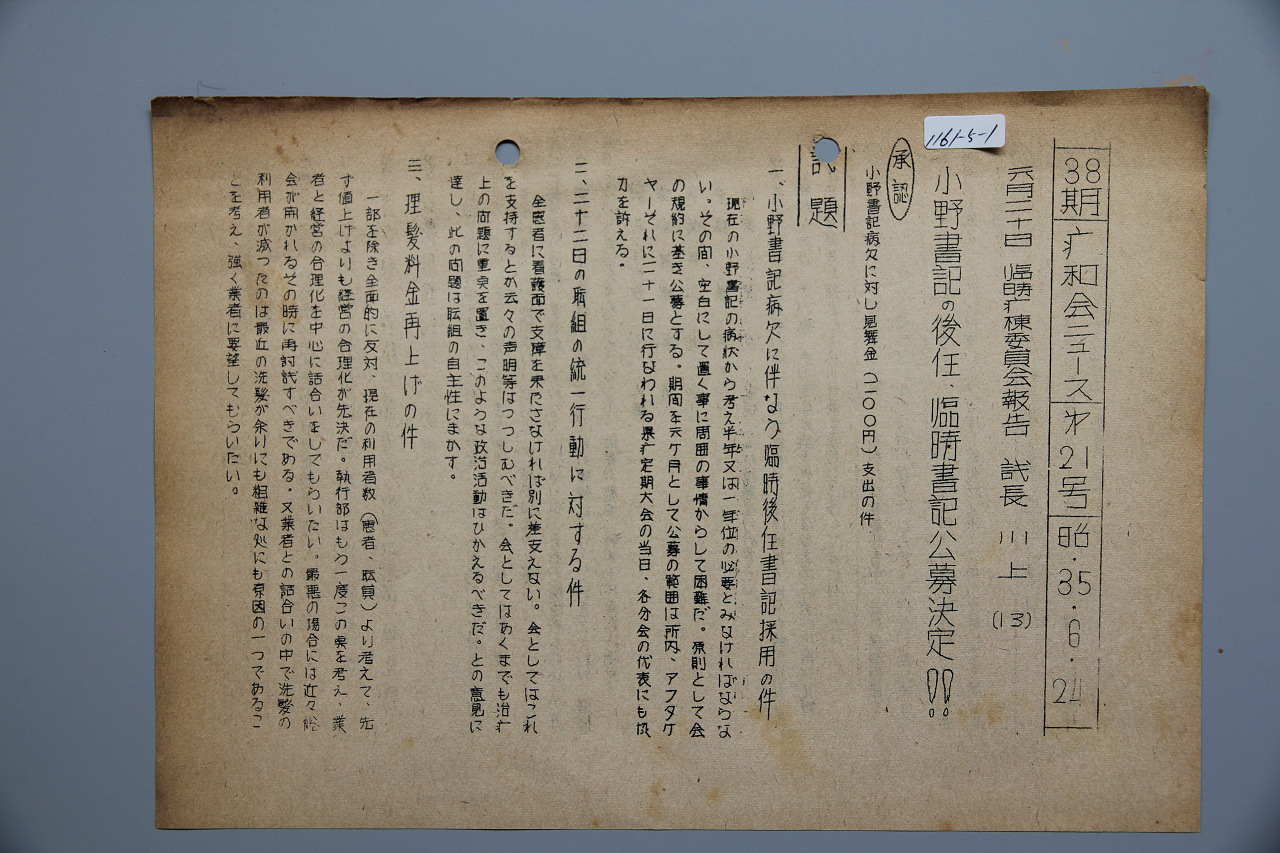 1161-5-1
38期 疒和会ニュース 才21号 昭・35・6・24
六月二十日 臨時疒棟委員会報告 議長 川上(13)
小野書記の後任、臨時書記公募決定!!
承認
小野書記病欠に対し見舞金(一〇〇円)支出の件
議題
一、小野書記病欠に伴なう臨時後任書記採用の件
現在の小野書記の病状から考え半年又は一年位の必要とみなければならな
い。その間、空白にして置く事に周囲の事情からして困難だ。原則として会
の規約に基き公募とする。期間を六ケ月として公募の範囲は所内、アフタケ
ヤーそれに二十一日に行なわれる県疒定期大会の当日、各分会の代表にも協
力を訴える。
二、二十二日の職組の統一行動に対する件
全患者に看護面で支障を来たさなければ別に差支えない。会としてはこれ
を支持するとか云々の声明等はつつしむべきだ。会としてはあくまでも治疒
上の問題に重点を置き、このような政治活動はひかえるべきだ。との意見に
達し、此の問題は職組の自主性にまかす。
三、理髪料金再上げの件
一部を除き全面的に反対、現在の利用者数(患者、職員)より考えて、先
ず値上げよりも経営の合理化が先決だ。執行部はもう一度この点を考え、業
者と経営の合理化を中心に話合いをしてもらいたい。最悪の場合には近々総
会が開かれるその時に再討議すべきである。又業者との話合いの中で洗髪の
利用者が減つたのは最近の洗髪が余りにも粗雑な処にも原因の一つであるこ
とを考え、強く業者に要望してもらいたい。